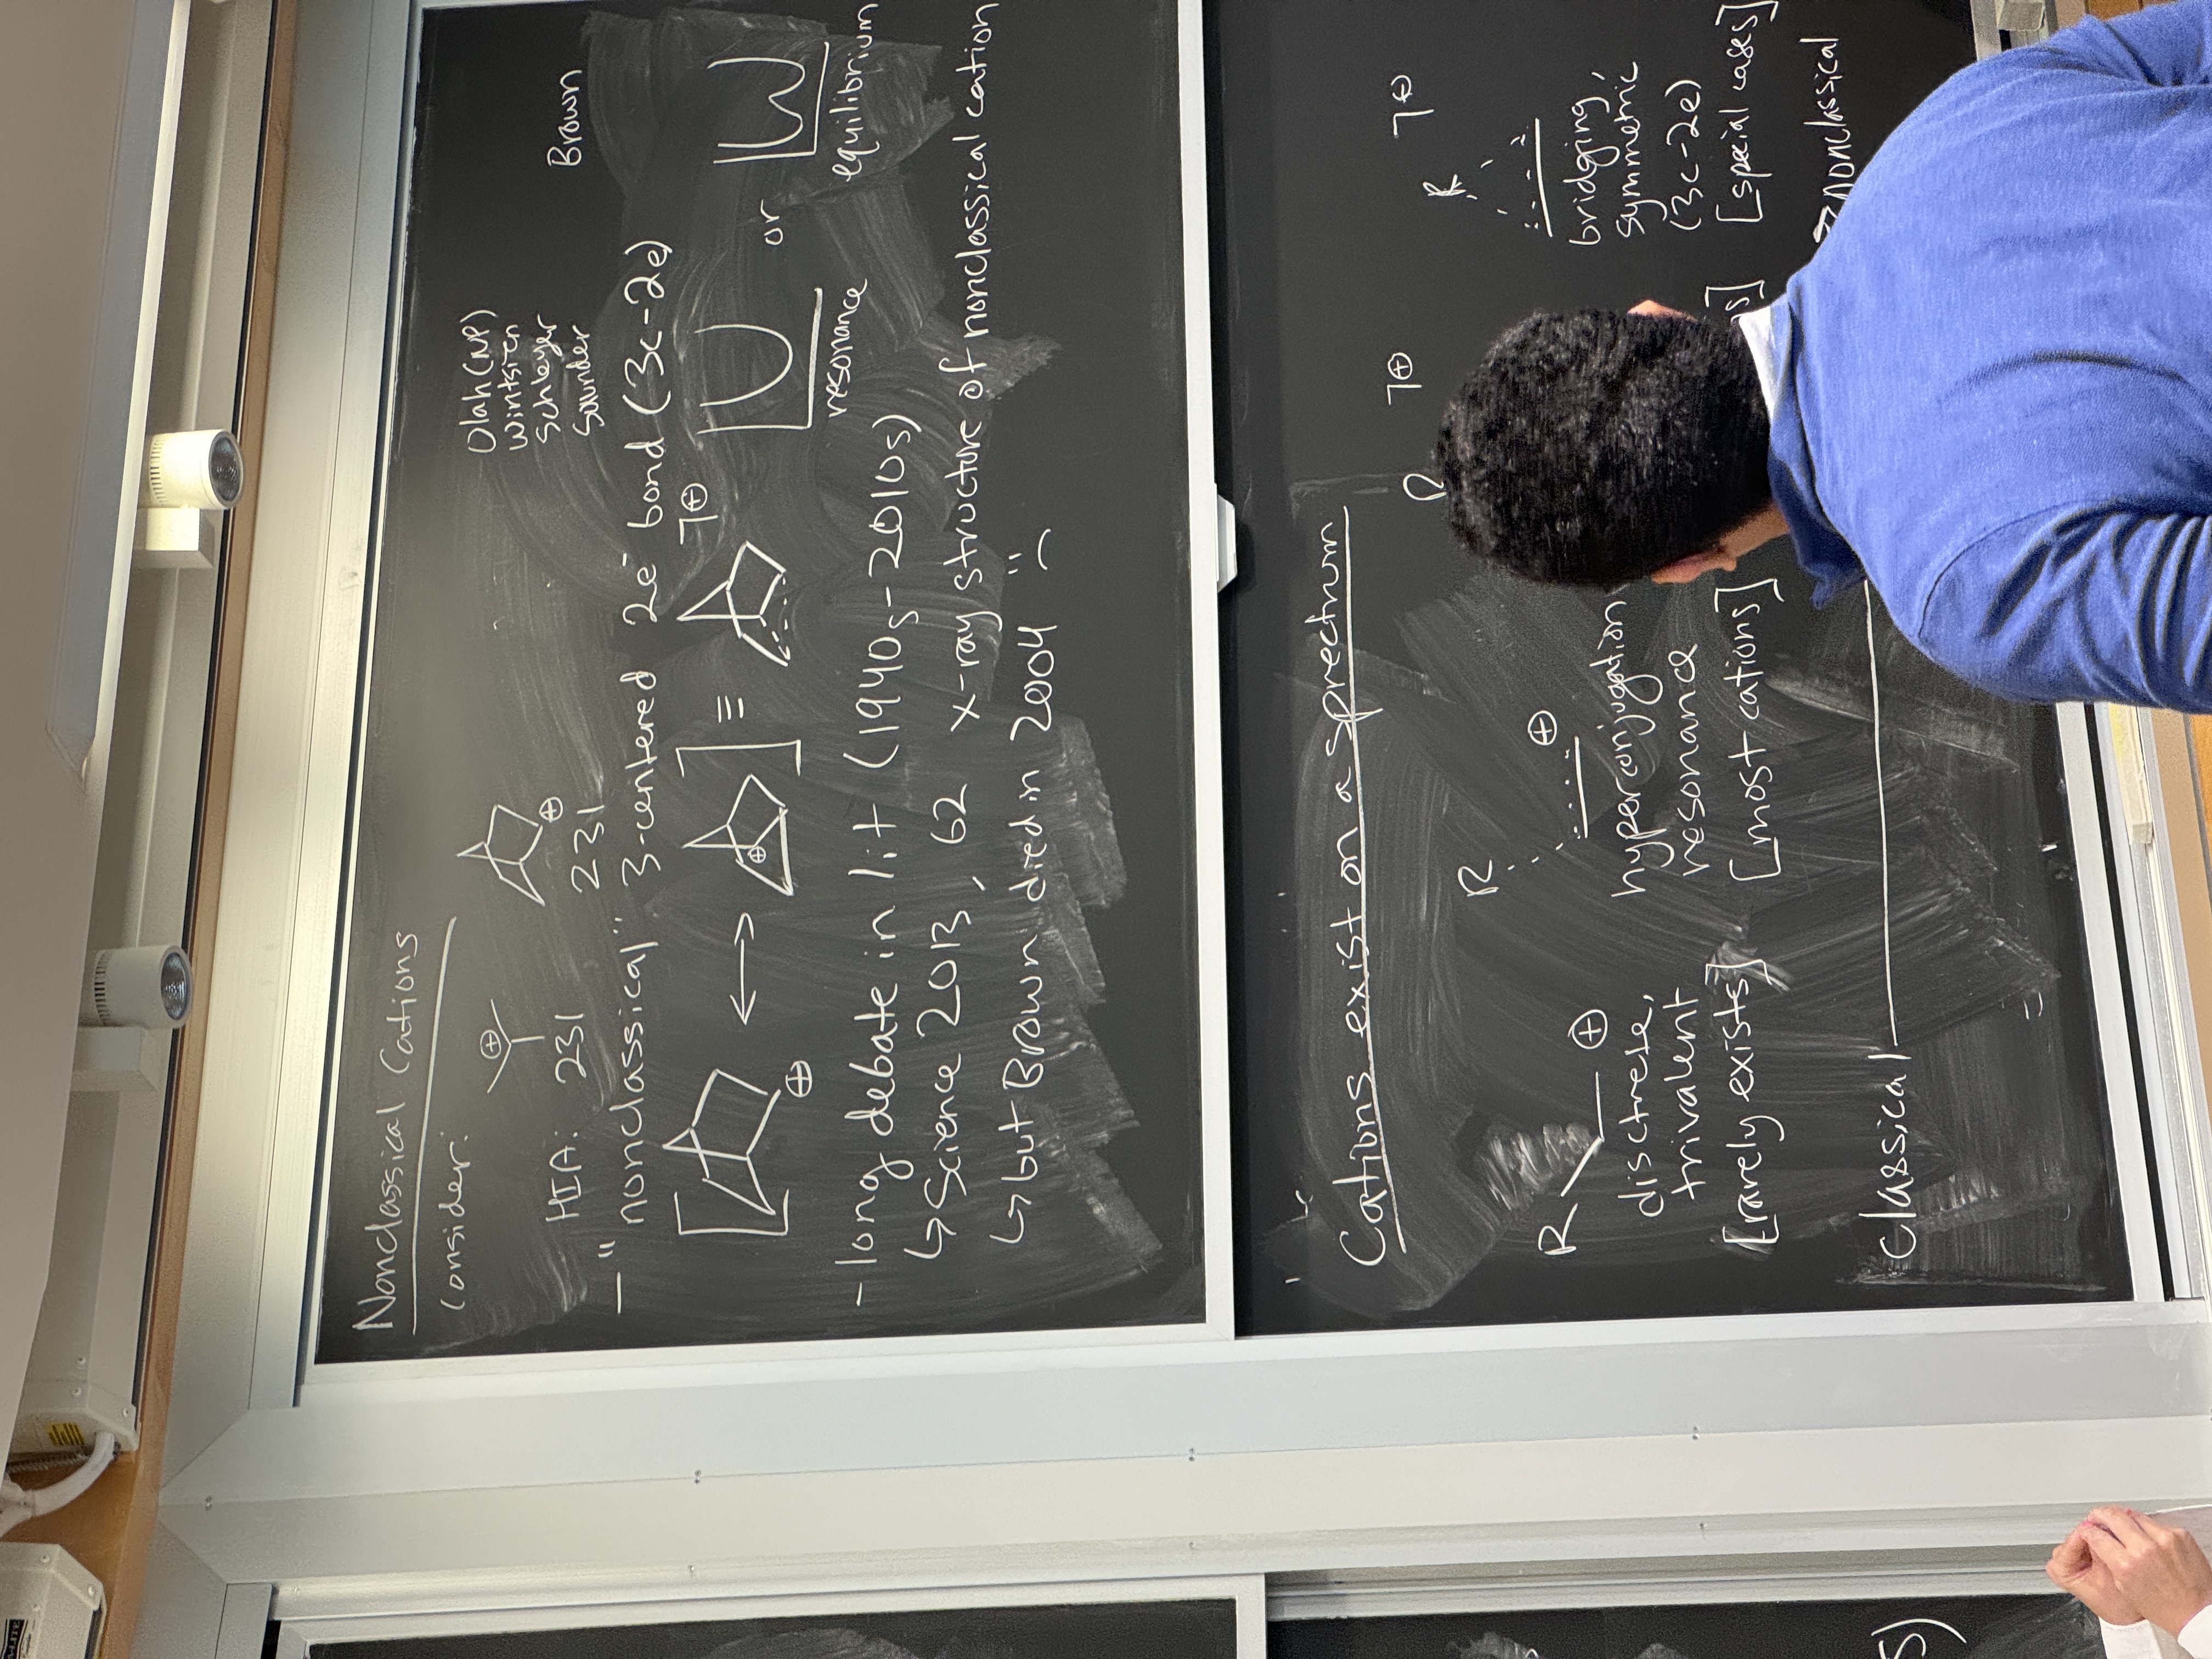 Nonclassical Cations
Consider:
⊕
⊕
HIA: 231 231
Olah (NP)
Wintsien
Schleyer
Saunder
Brown
- "nonclassical" 3-centered 2e⁻ bond (3c-2e)
[ ⊕ ↔ ⊕ ] ≡ ⊕
or
resonance
equilibrium
- long debate in lit (1940s-2010s)
↳ Science 2013, 62 x-ray structure of nonclassical cation
↳ but Brown died in 2004 :(
Cations exist on a sprectrum
R ⊕
disctrete,
trivalent
[rarely exists]
R ⊕
hyperconjugation
resonance
[most cations]
R ⊕
s]
R ⊕
bridging,
symmetric
(3c-2e)
[special cases]
Classical
nonclassical
s)